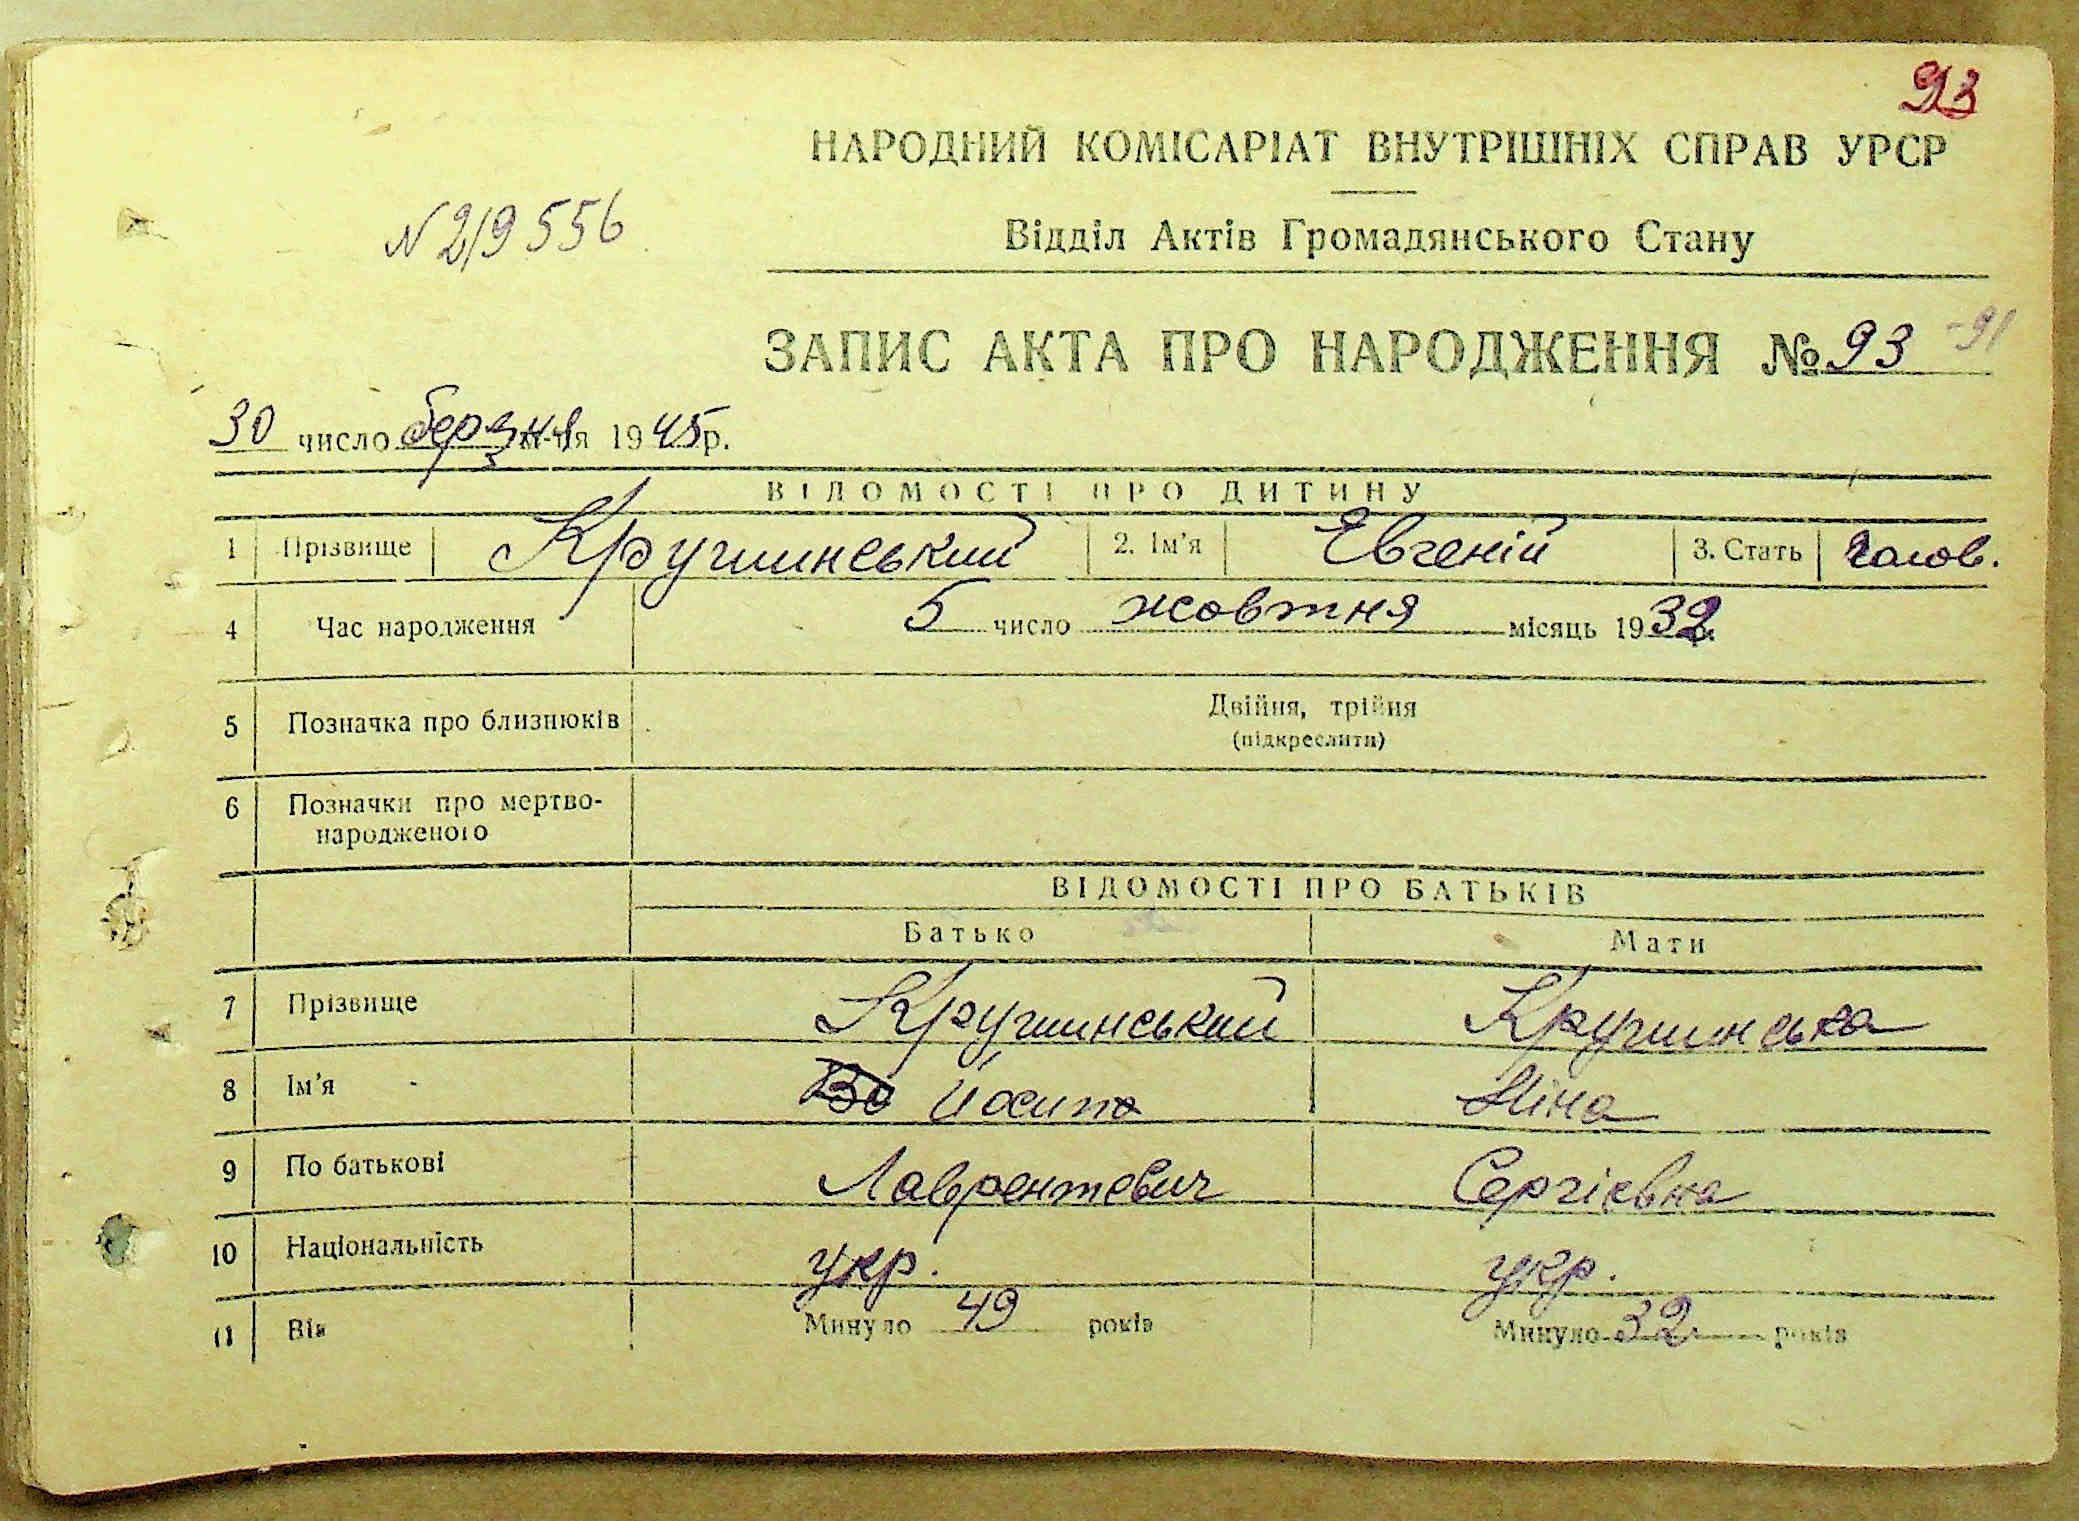 93
НАРОДНИЙ КОМІСАРІАТ ВНУТРІШНІХ СПРАВ УРСР
N 219556
Відділ Актів Громадянського Стану
ЗАПИС АКТА ПРО НАРОДЖЕННЯ № 93 -91
30 число березня м-ця 1945 р.
ВІДОМОСТІ ПРО ДИТИНУ
1 Прізвище Кругшинський 2. Ім'я Евгеній 3. Стать чолов.
4 Час народження 5 число жовтня місяць 1932.
5 Позначка про близнюків Двійня, трійня
(підкреслити)
6 Позначки про мертво-
народженого
ВІДОМОСТІ ПРО БАТЬКІВ
Батько Мати
7 Прізвище Кругшинський Кругшинська
8 Ім'я Йосип Ніна
9 По батькові Лаврентевич Сергієвна
10 Національність укр. укр.
11 Вік Минуло 49 років Минуло 32 років